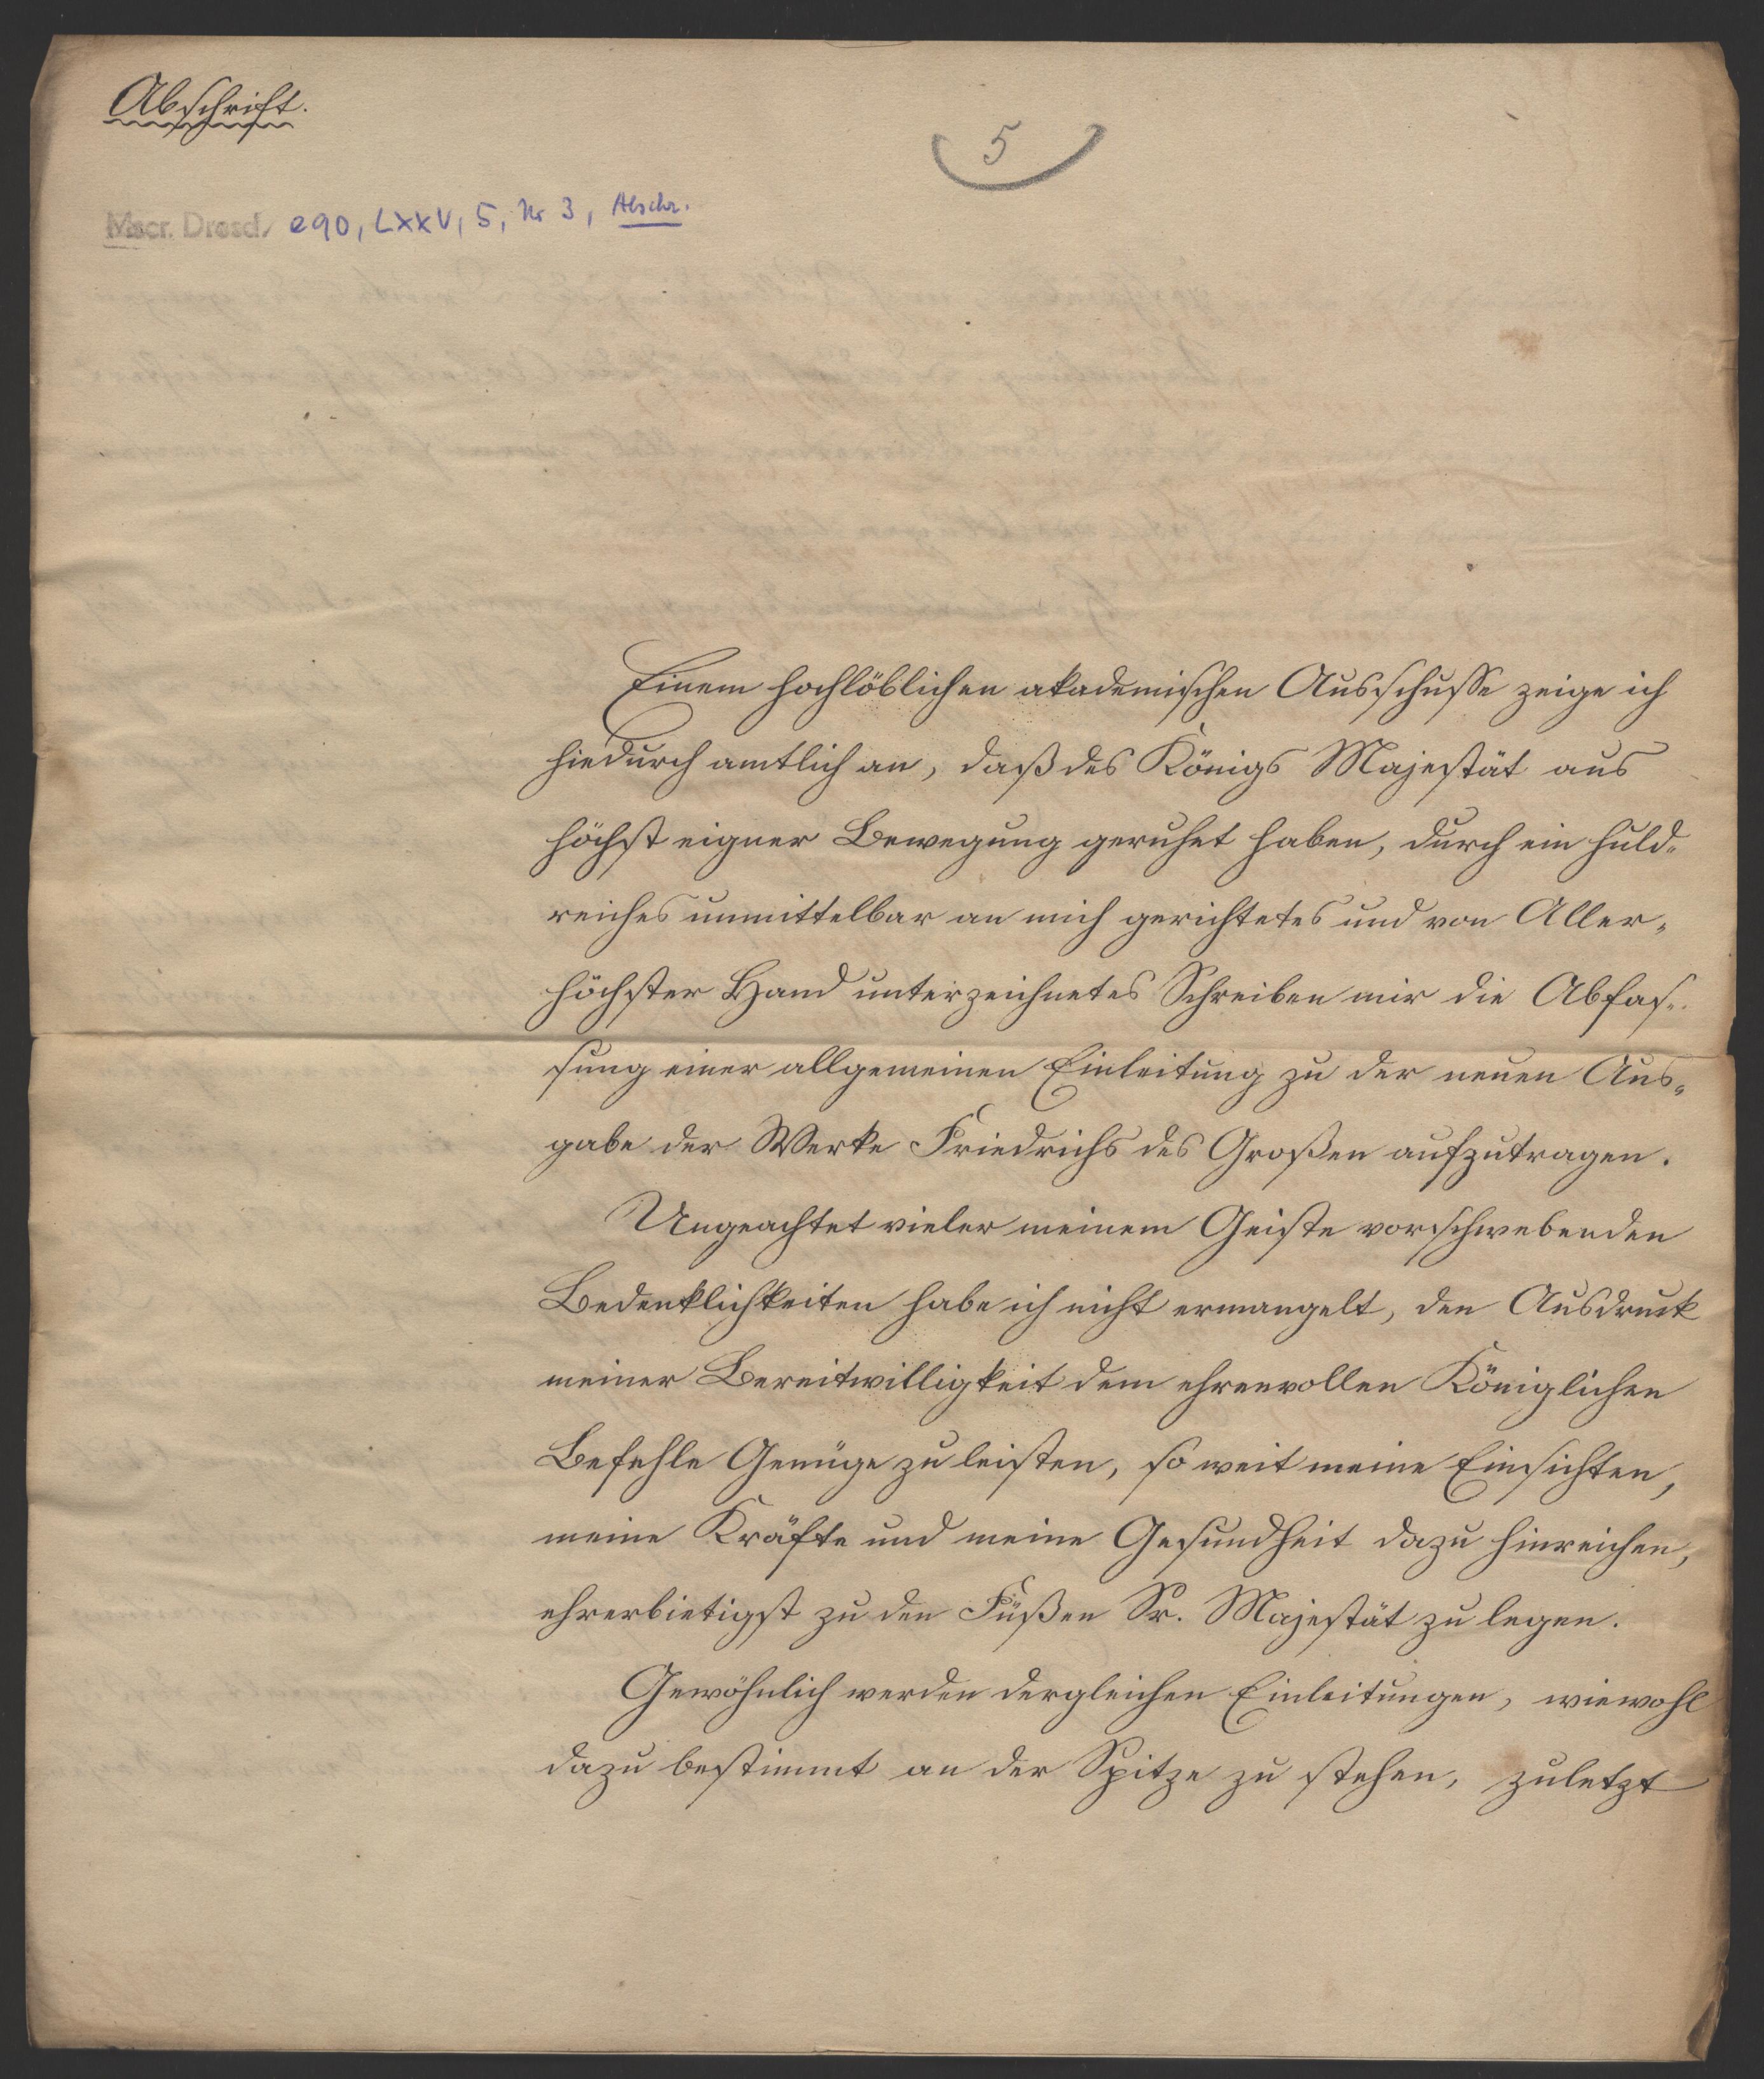 Abschrift.
5
Mscr. Dresd. e90, LXXV, 5, Nr 3, Abschr.
Einem hochlöblichen akademischen Ausschusse zeige ich
hiedurch amtlich an, daß des Königs Majestät aus
höchst eigner Bewegung geruhet haben, durch ein huld-
reiches unmittelbar an mich gerichtetes und von Aller-
höchster Hand unterzeichnetes Schreiben mir die Abfas-
sung einer allgemeinen Einleitung zu der neuen Aus-
gabe der Werke Friedrichs des Großen aufzutragen.
Ungeachtet vieler meinem Geiste vorschwebenden
Bedenklichkeiten habe ich nicht ermangelt, den Ausdruck
meiner Bereitwilligkeit dem ehrenvollen Königlichen
Befehle Genüge zu leisten, so weit meine Einsichten,
meine Kräfte und meine Gesundheit dazu hinreichen,
ehrerbietigst zu den Füßen Sr. Majestät zu legen.
Gewöhnlich werden dergleichen Einleitungen, wiewohl
dazu bestimmt an der Spitze zu stehen, zuletzt